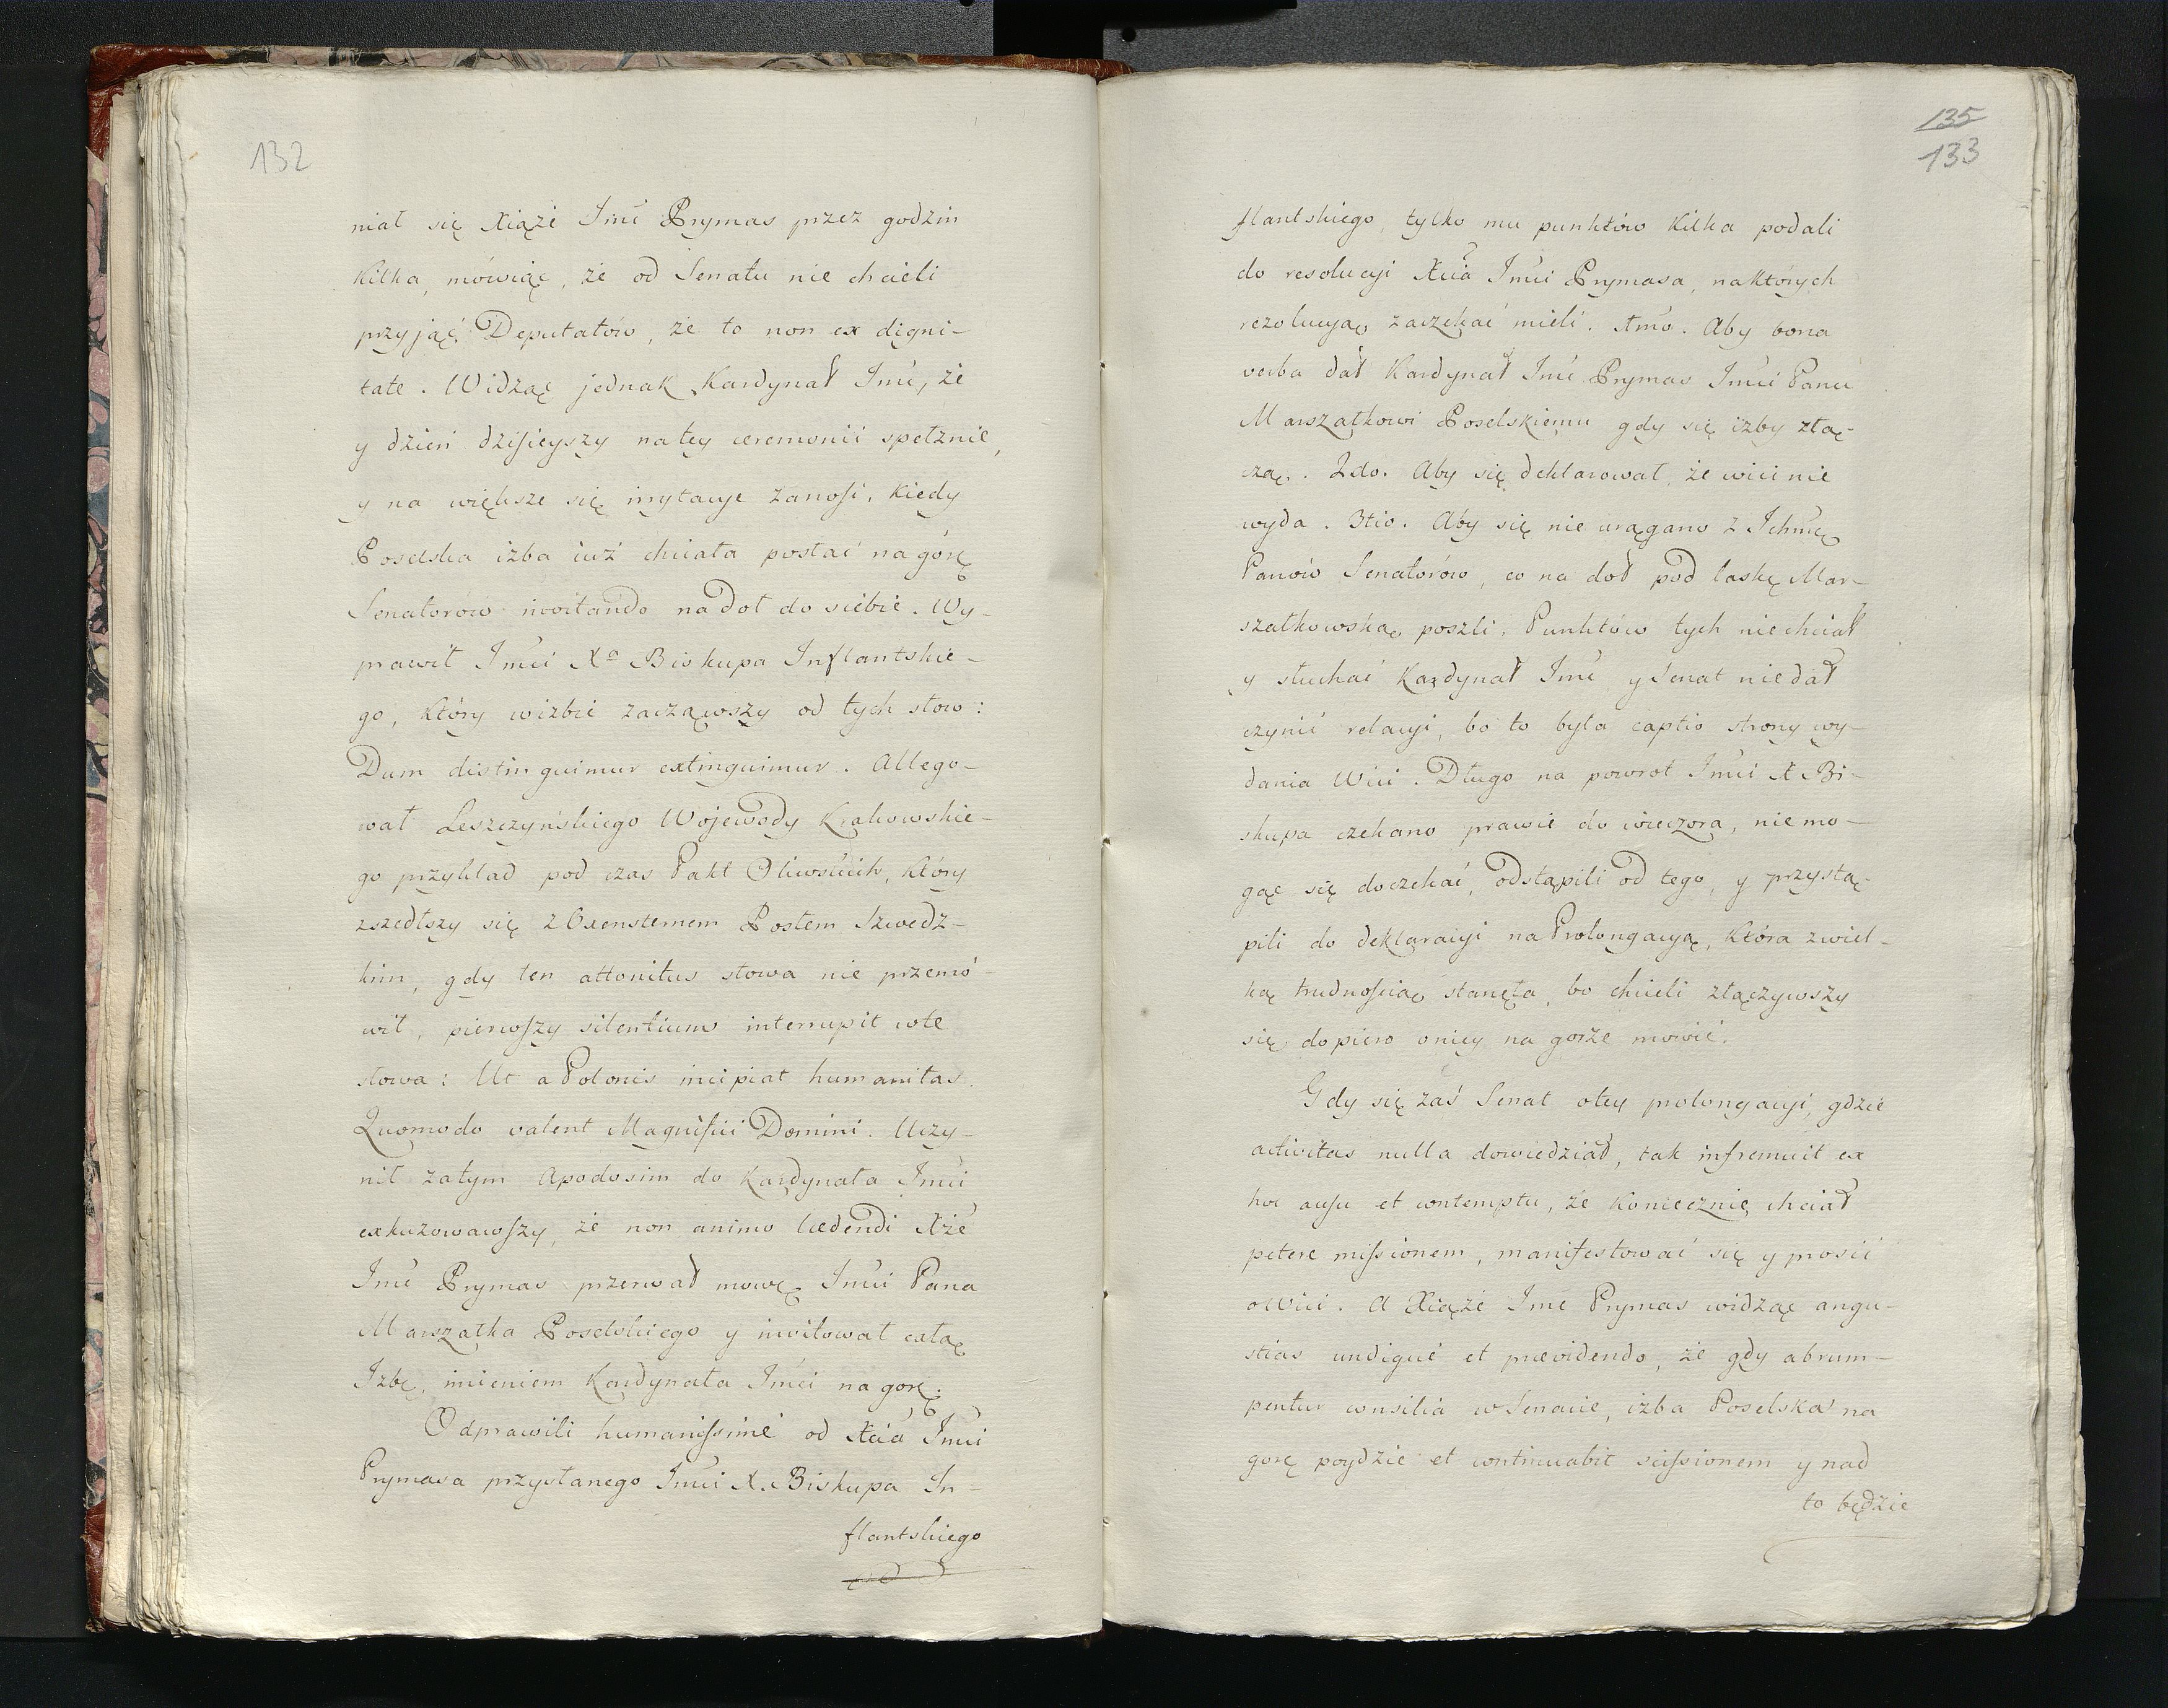 132
niał się Xiąże Jmć Prymas przez godzin
Kilka, mówiąc, że od Senatu nie chcieli
przyjąć Deputatów, że to non ex digni-
tate. Widząc jednak Kardynał Jmć, że
y dzień dzisieyszy na tey ceremonii spełznie,
y na większe się irrytacye zanosi, Kiedy
Poselska izba iuż chciała postać na górę
Senatorów invitando na doł do siebie. Wy-
prawił Jmci Xa Biskupa Inflantskie-
go, Który w izbie zacząwszy od tych słow:
Dum distinguimur extinguimur. Allego-
wał Leszczyńskiego Wojewody Krakowskie-
go przykład pod czas Pakt Oliwskich, Który
zszedłszy się z Oxensternem Posłem Szwedz-
kim, gdy ten attonitus słowa nie przemó-
wił, pierwszy silentium interrupit w te
słowa: Ut a Polonis incipiat humanitas.
Quomodo valent Magnifici Domini. Uczy-
nił zatym Apodosim do Kardynała Jmci
exkuzowawszy, że non animo lædendi Xże
Jmć Prymas przerwał mowę Jmci Pana
Marszałka Poselskiego y invitował całą
Izbę, imieniem Kardynała Jmci na gorę.
Odprawili humanissime od Xcia Jmci
Prymasa przysłanego Jmci X. Biskupa In-
flantskiego
135
133
flantskiego, tylko mu punktów Kilka podali
do resolucyi Xcia Jmci Prymasa, na których
rezolucyą zaczekać mieli. 1mo. Aby bona
verba dał Kardynał Jmć Prymas Jmci Panu
Marszałkowi Poselskiemu gdy się izby złą-
czą. 2do. Aby się deklarował, że wici nie
wyda. 3tio. Aby się nie urągano z Ichmę
Panów Senatorów, co na doł pod laskę Mar-
szałkowską poszli. Punktów tych nie chciał
y słuchać Kardynał Jmć y Senat nie dał
czynić relacyi, bo to była captio strony wy-
dania Wici. Długo na powrot Jmci X Bi-
skupa czekano prawie do wieczora, nie mo-
gąc się doczekać, odstąpili od tego, y przystą-
pili do deklaracyi na Prolongacyą, Która z wiel-
ką trudnością stanęła, bo chcieli złączywszy
się dopiero o niey na gorze mowić.
Gdy się zaś Senat o tey prolongacyi, gdzie
activitas nulla dowiedział, tak infremuit ex
hoc ausu et contemptu, że Koniecznie chciał
petere missionem, manifestować się y prosić
o Wici. A Xiąże Jmć Prymas widząc angu-
stias undique et prævidendo, że gdy abrum-
pentur consilia w Senacie, izba Poselska na
gorę poydzie et continuabit scissionem y nad
to będzie